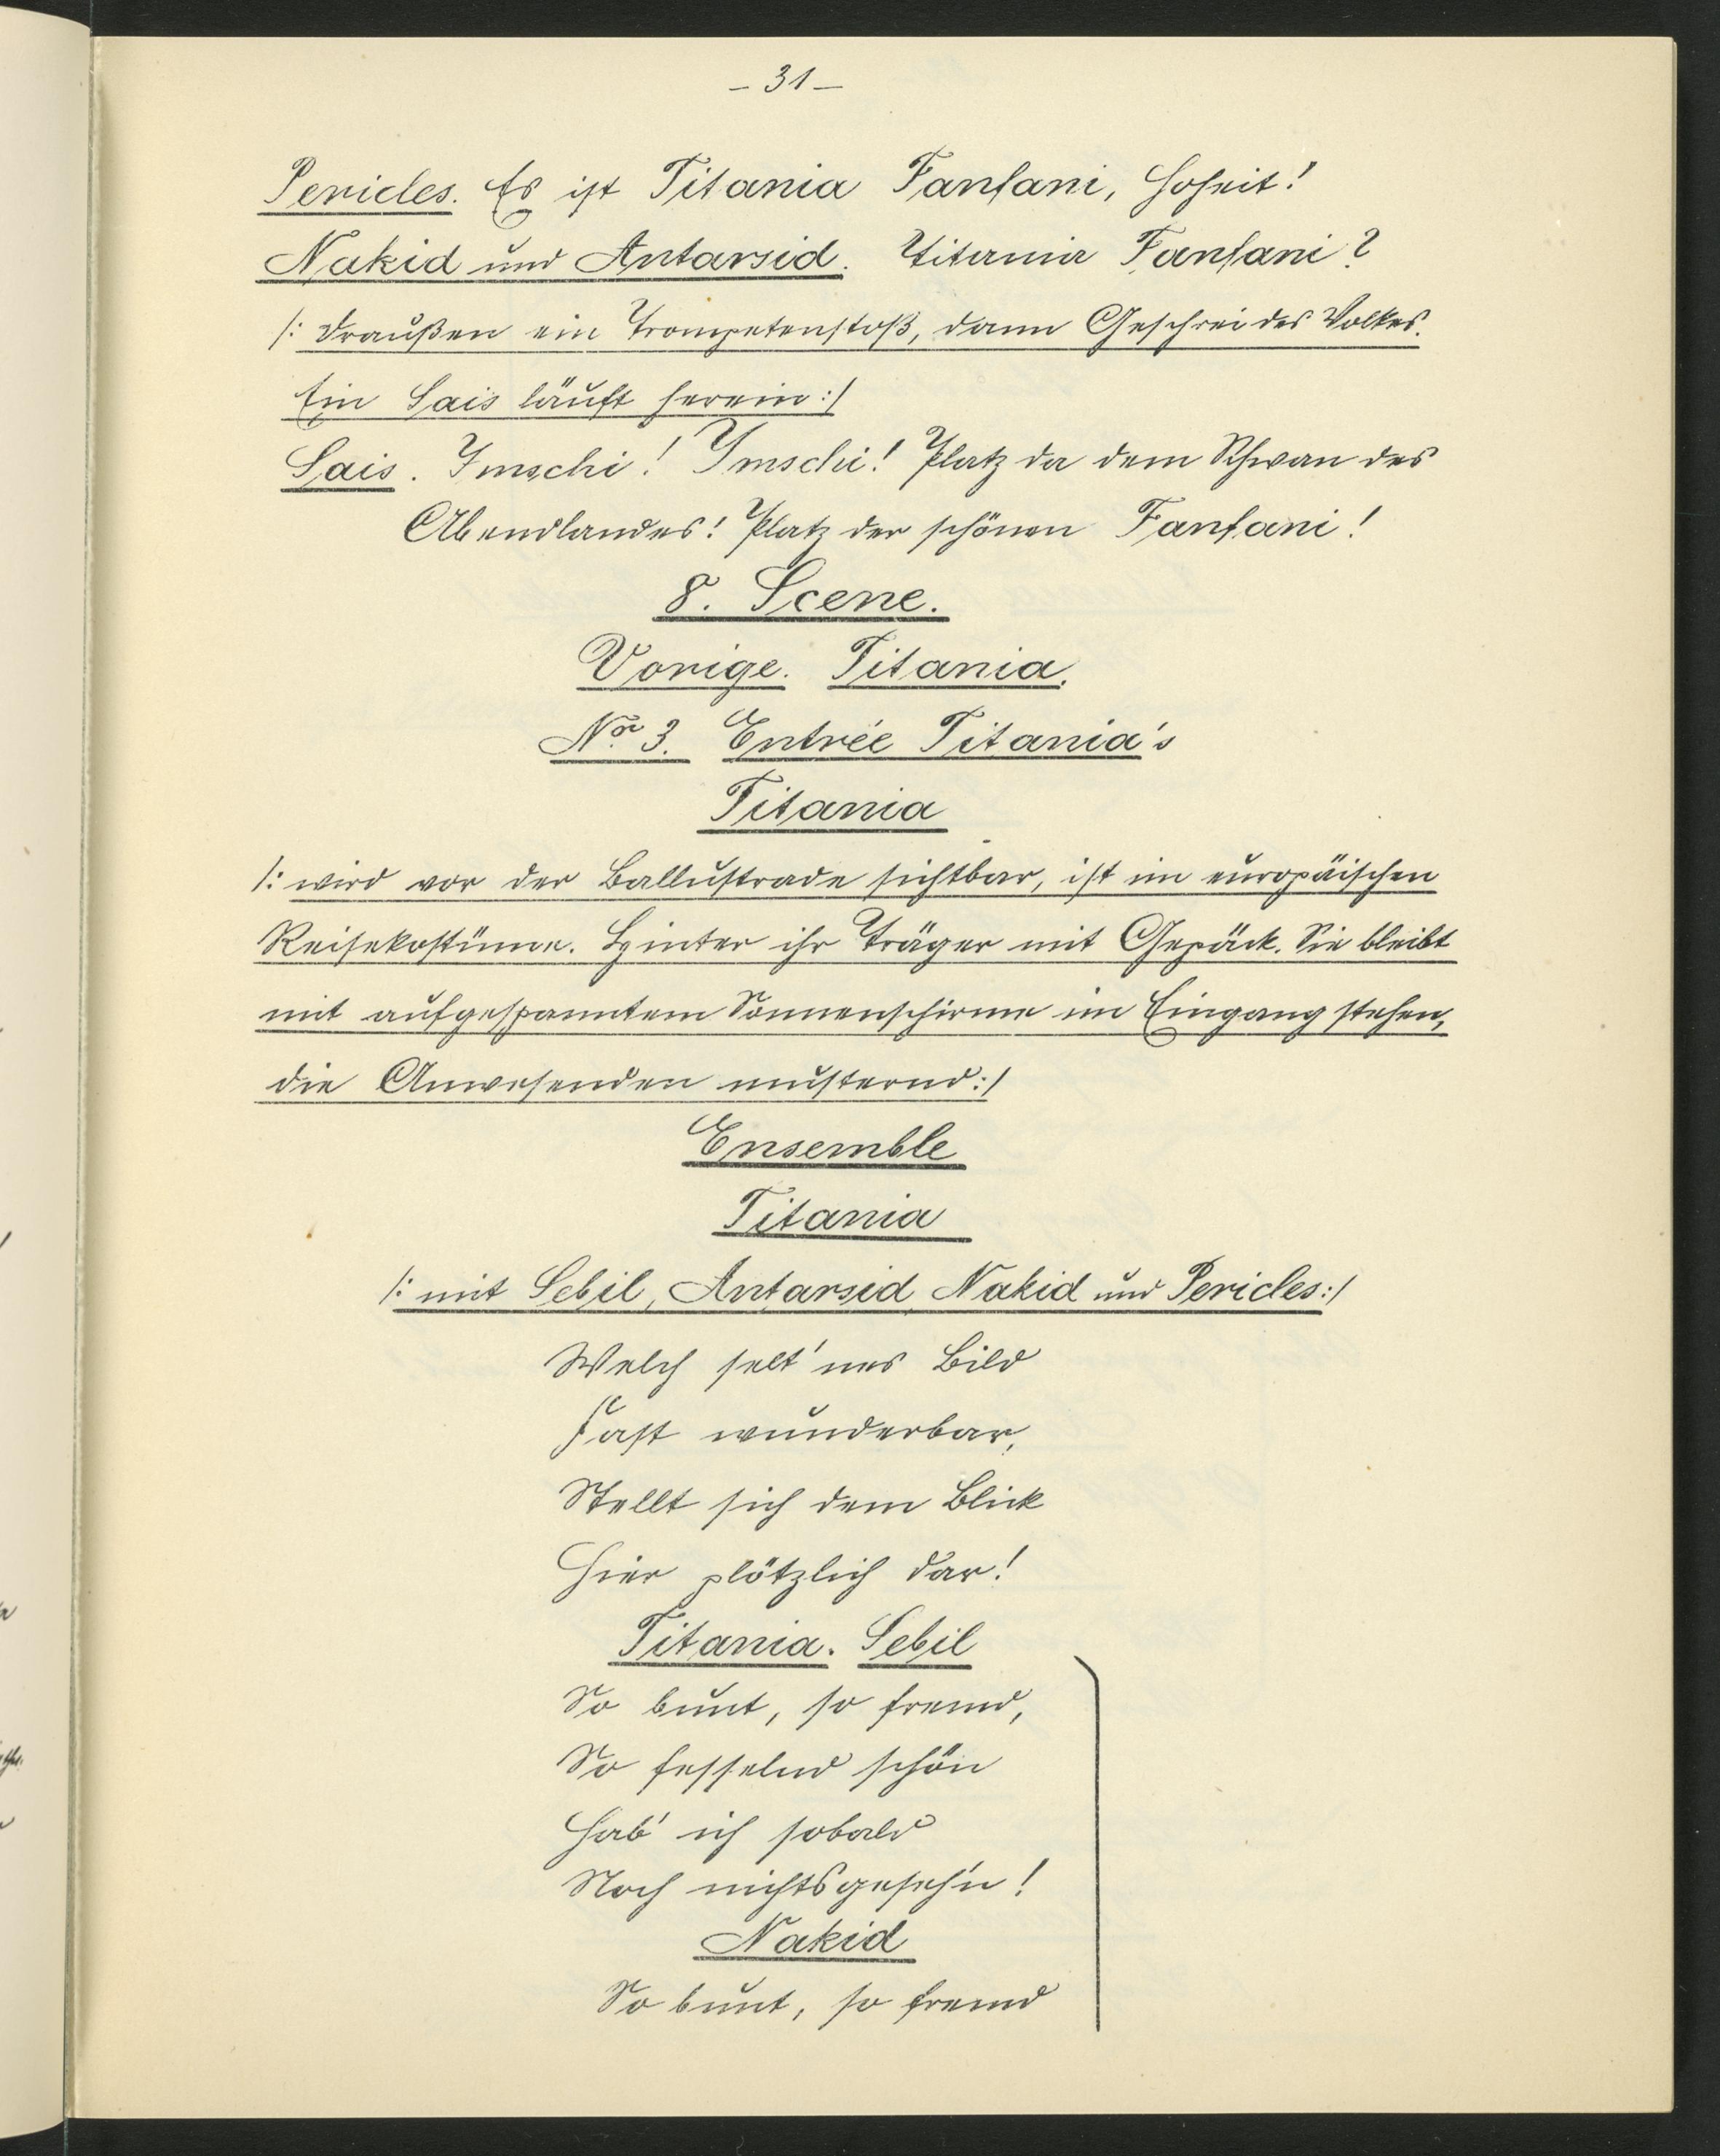 – 31 –
Pericles. Es ist Titania Fanfani, Hoheit!
Nakid und Antarsid. Titania Fanfani?
/: Draußen ein Trompetenstoß, dann Geschrei des Volkes.
Ein Sais läuft herein :/
Sais. Imschi! Imschi! Platz da dem Schwan des
Abendlandes! Platz der schönen Fanfani!
8. Scene.
Vorige. Titania.
No. 3. Entrée Titania's
Titania
/: wird vor der Ballustrade sichtbar, ist im europäischen
Reisekostüme. Hinter ihr Träger mit Gepäck. Sie bleibt
mit aufgespanntem Sonnenschirme im Eingang stehen,
die Anwesenden musternd :/
Ensemble
Titania
/: mit Sebil, Antarsid, Nakid und Pericles :/
Welch selt'nes Bild
Fast wunderbar,
Stellt sich dem Blick
Hier plötzlich dar!
Titania. Sebil
So bunt, so fremd,
So fesselnd schön
Hab' ich sobald
Noch nichts geseh'n!
Nakid
So bunt, so fremd